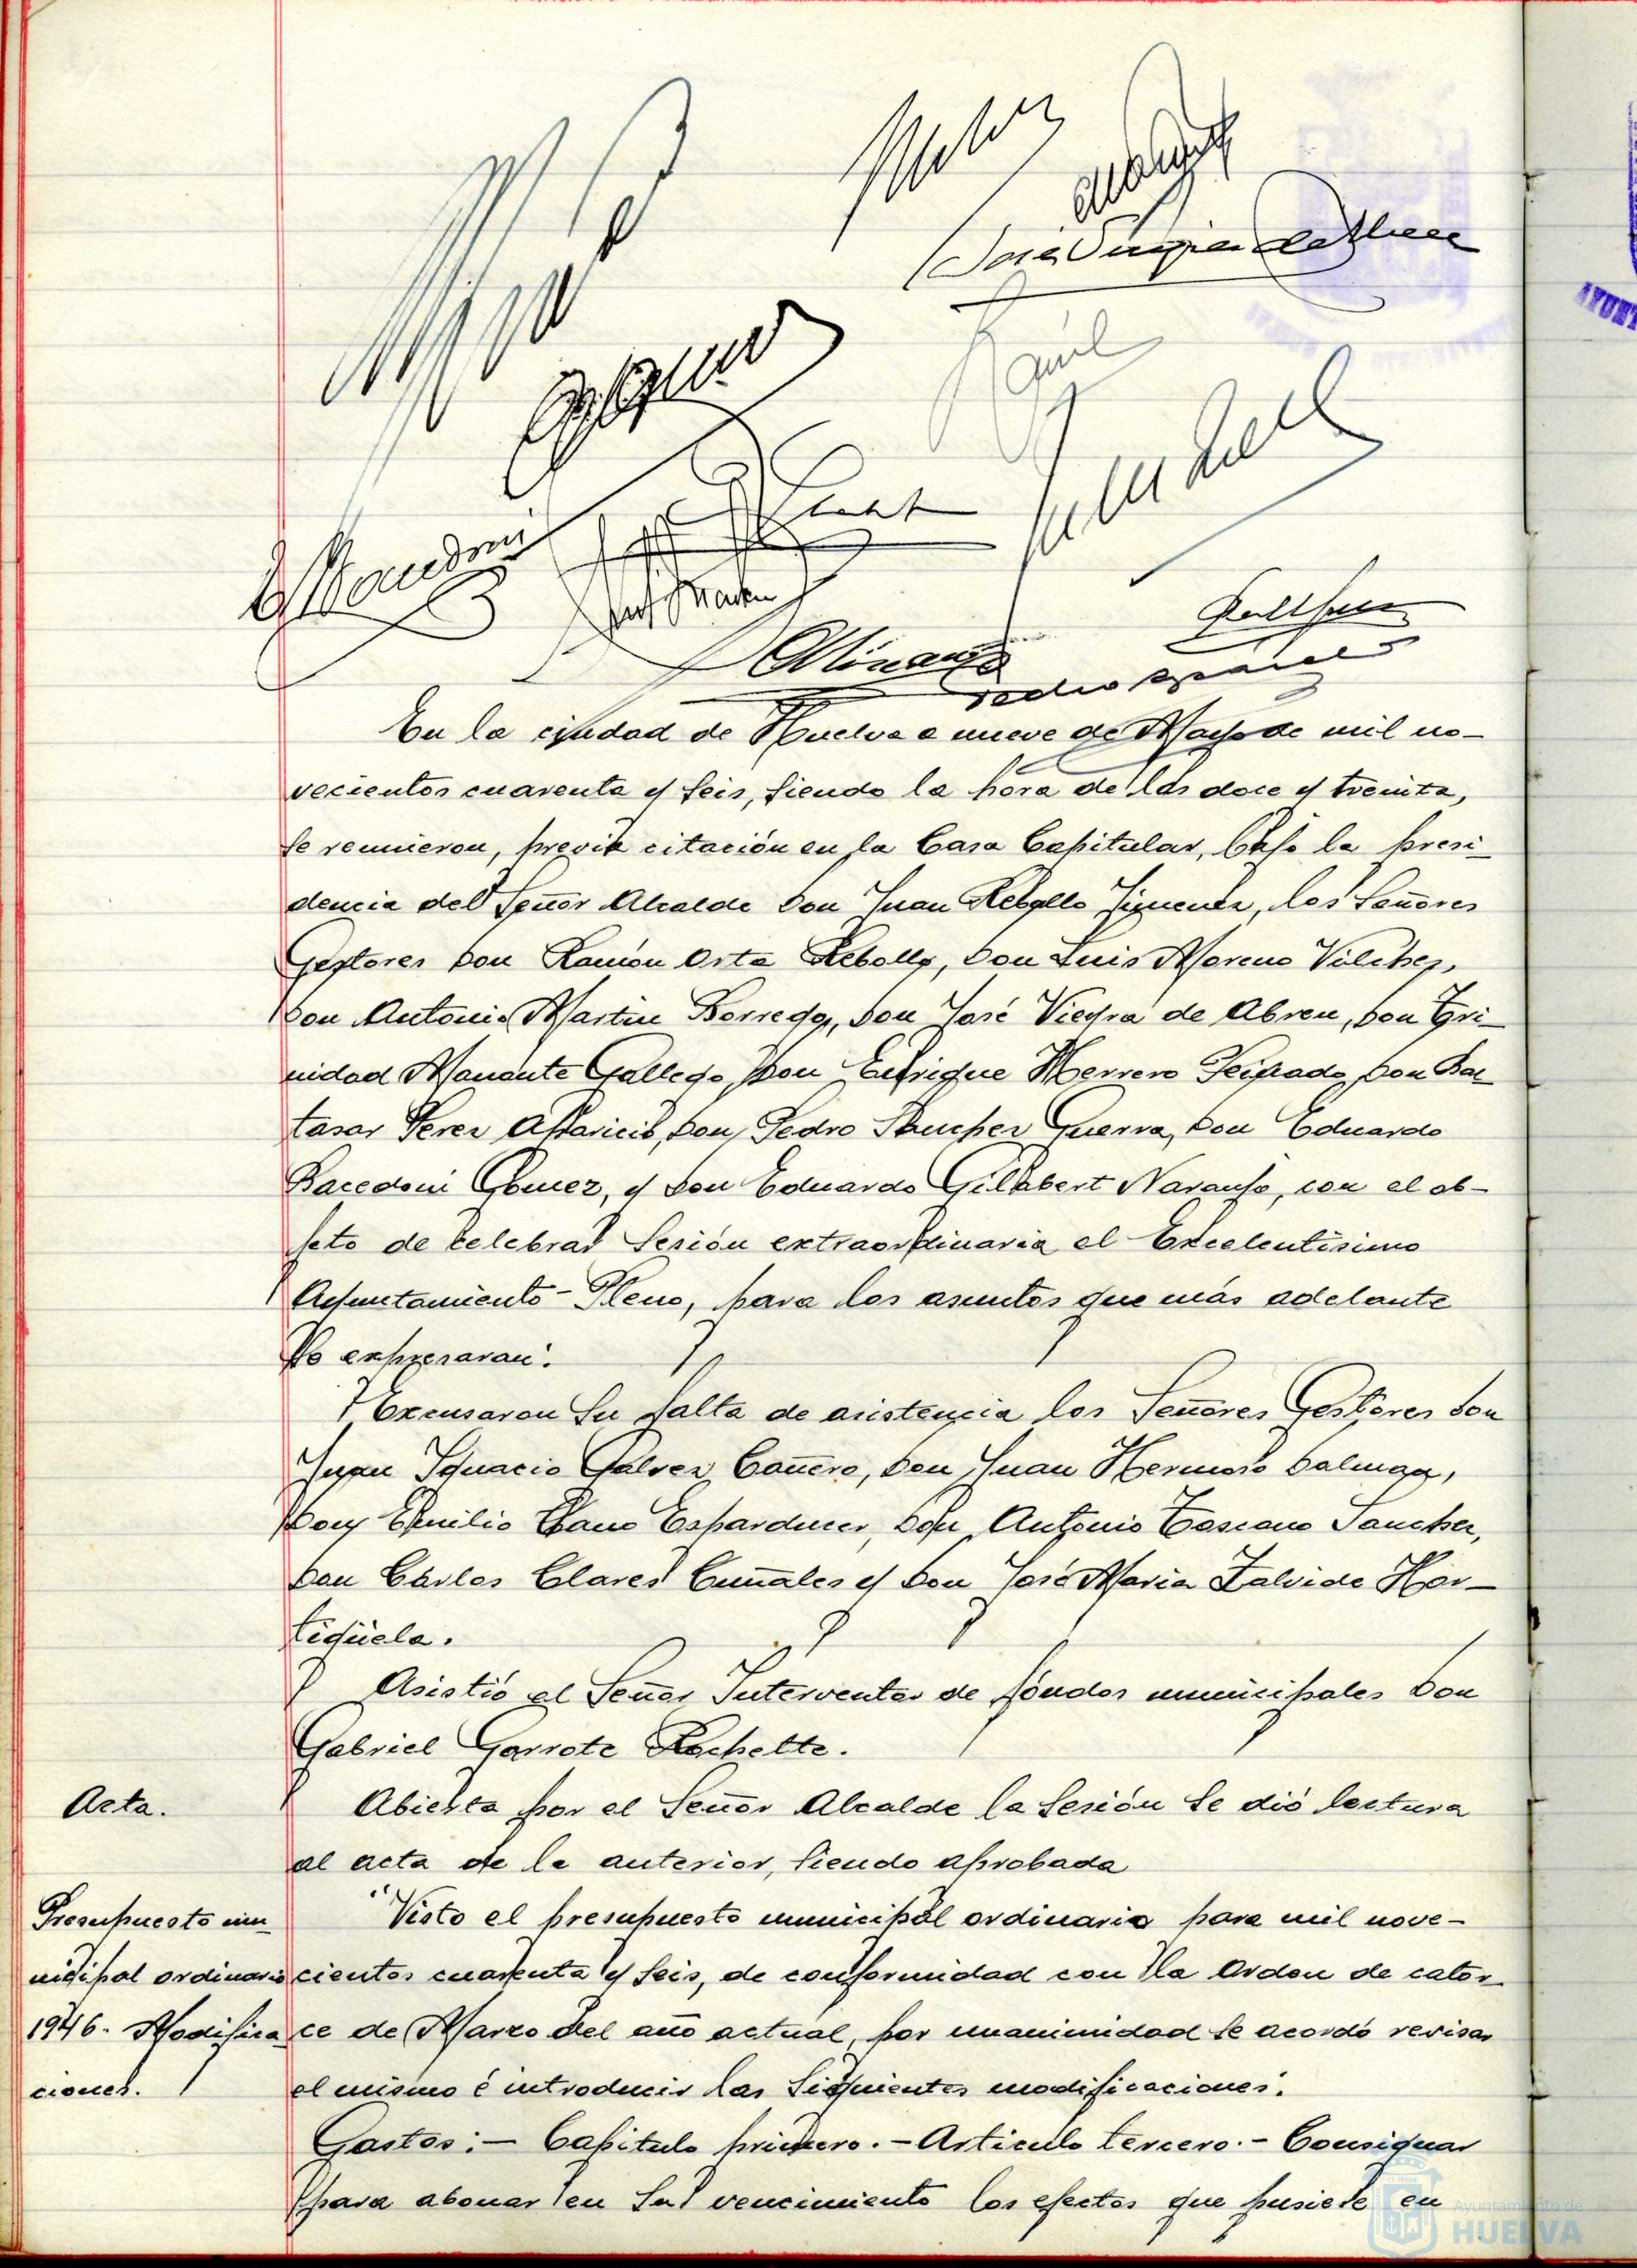 En la ciudad de Huelva a nueve de Mayo de mil no-
vecientos cuarenta y seis, siendo la hora de las doce y treinta,
se reunieron, previa citación en la Casa Capitular, bajo la presi-
dencia del Señor Alcalde Don Juan Rebollo Jiménez, los Señores
Gestores Don Ramón Orta Rebollo, Don Luis Moreno Vilchez,
Don Antonio Martin Borrego, Don José Vieyra de Abreu, Don Tri-
nidad Manante Gallego, Don Enrique Herrero Don Bal
tasar Perez Aparicio, Don Pedro Sanchez Guerra, Don Eduardo
Bacedoni Gómez, y Don Eduardo Gilabert Naranjo, con el ob-
jeto de celebrar Sesión extraordinaria el Excelentisimo
Ayuntamiento-Pleno, para los asuntos que más adelante
se expresaran.
Excusaron su falta de asistencia los Señores Gestores Don
Juan Ignacio Galvez Cañero, Don Juan Hermoso
Don Emilio Cano Don Antonio Toscano Sanchez,
Don Cárlos Clares y Don José Maria Zalvide Hor-
tigüela.
Asistió el Señor Interventor de fondos municipales Don
Gabriel Garrote Rochette.
Acta.
Abierta por el Señor Alcalde la Sesión se dió lectura
al acta de la anterior, siendo aprobada
Presupuesto mu
nicipal ordinario
1946. Modifica
ciones.
Visto el presupuesto municipal ordinario para mil nove-
cientos cuarenta y seis, de conformidad con la Orden de cator
ce de Marzo del año actual, por unanimidad se acordó revisar
el mismo é introducir las siguientes modificaciones.
Gastos:- Capitulo primero.- Articulo tercero.- Consignar
para abonar en su vencimiento los efectos que pusiese en
Ayuntamiento de
HUELVA